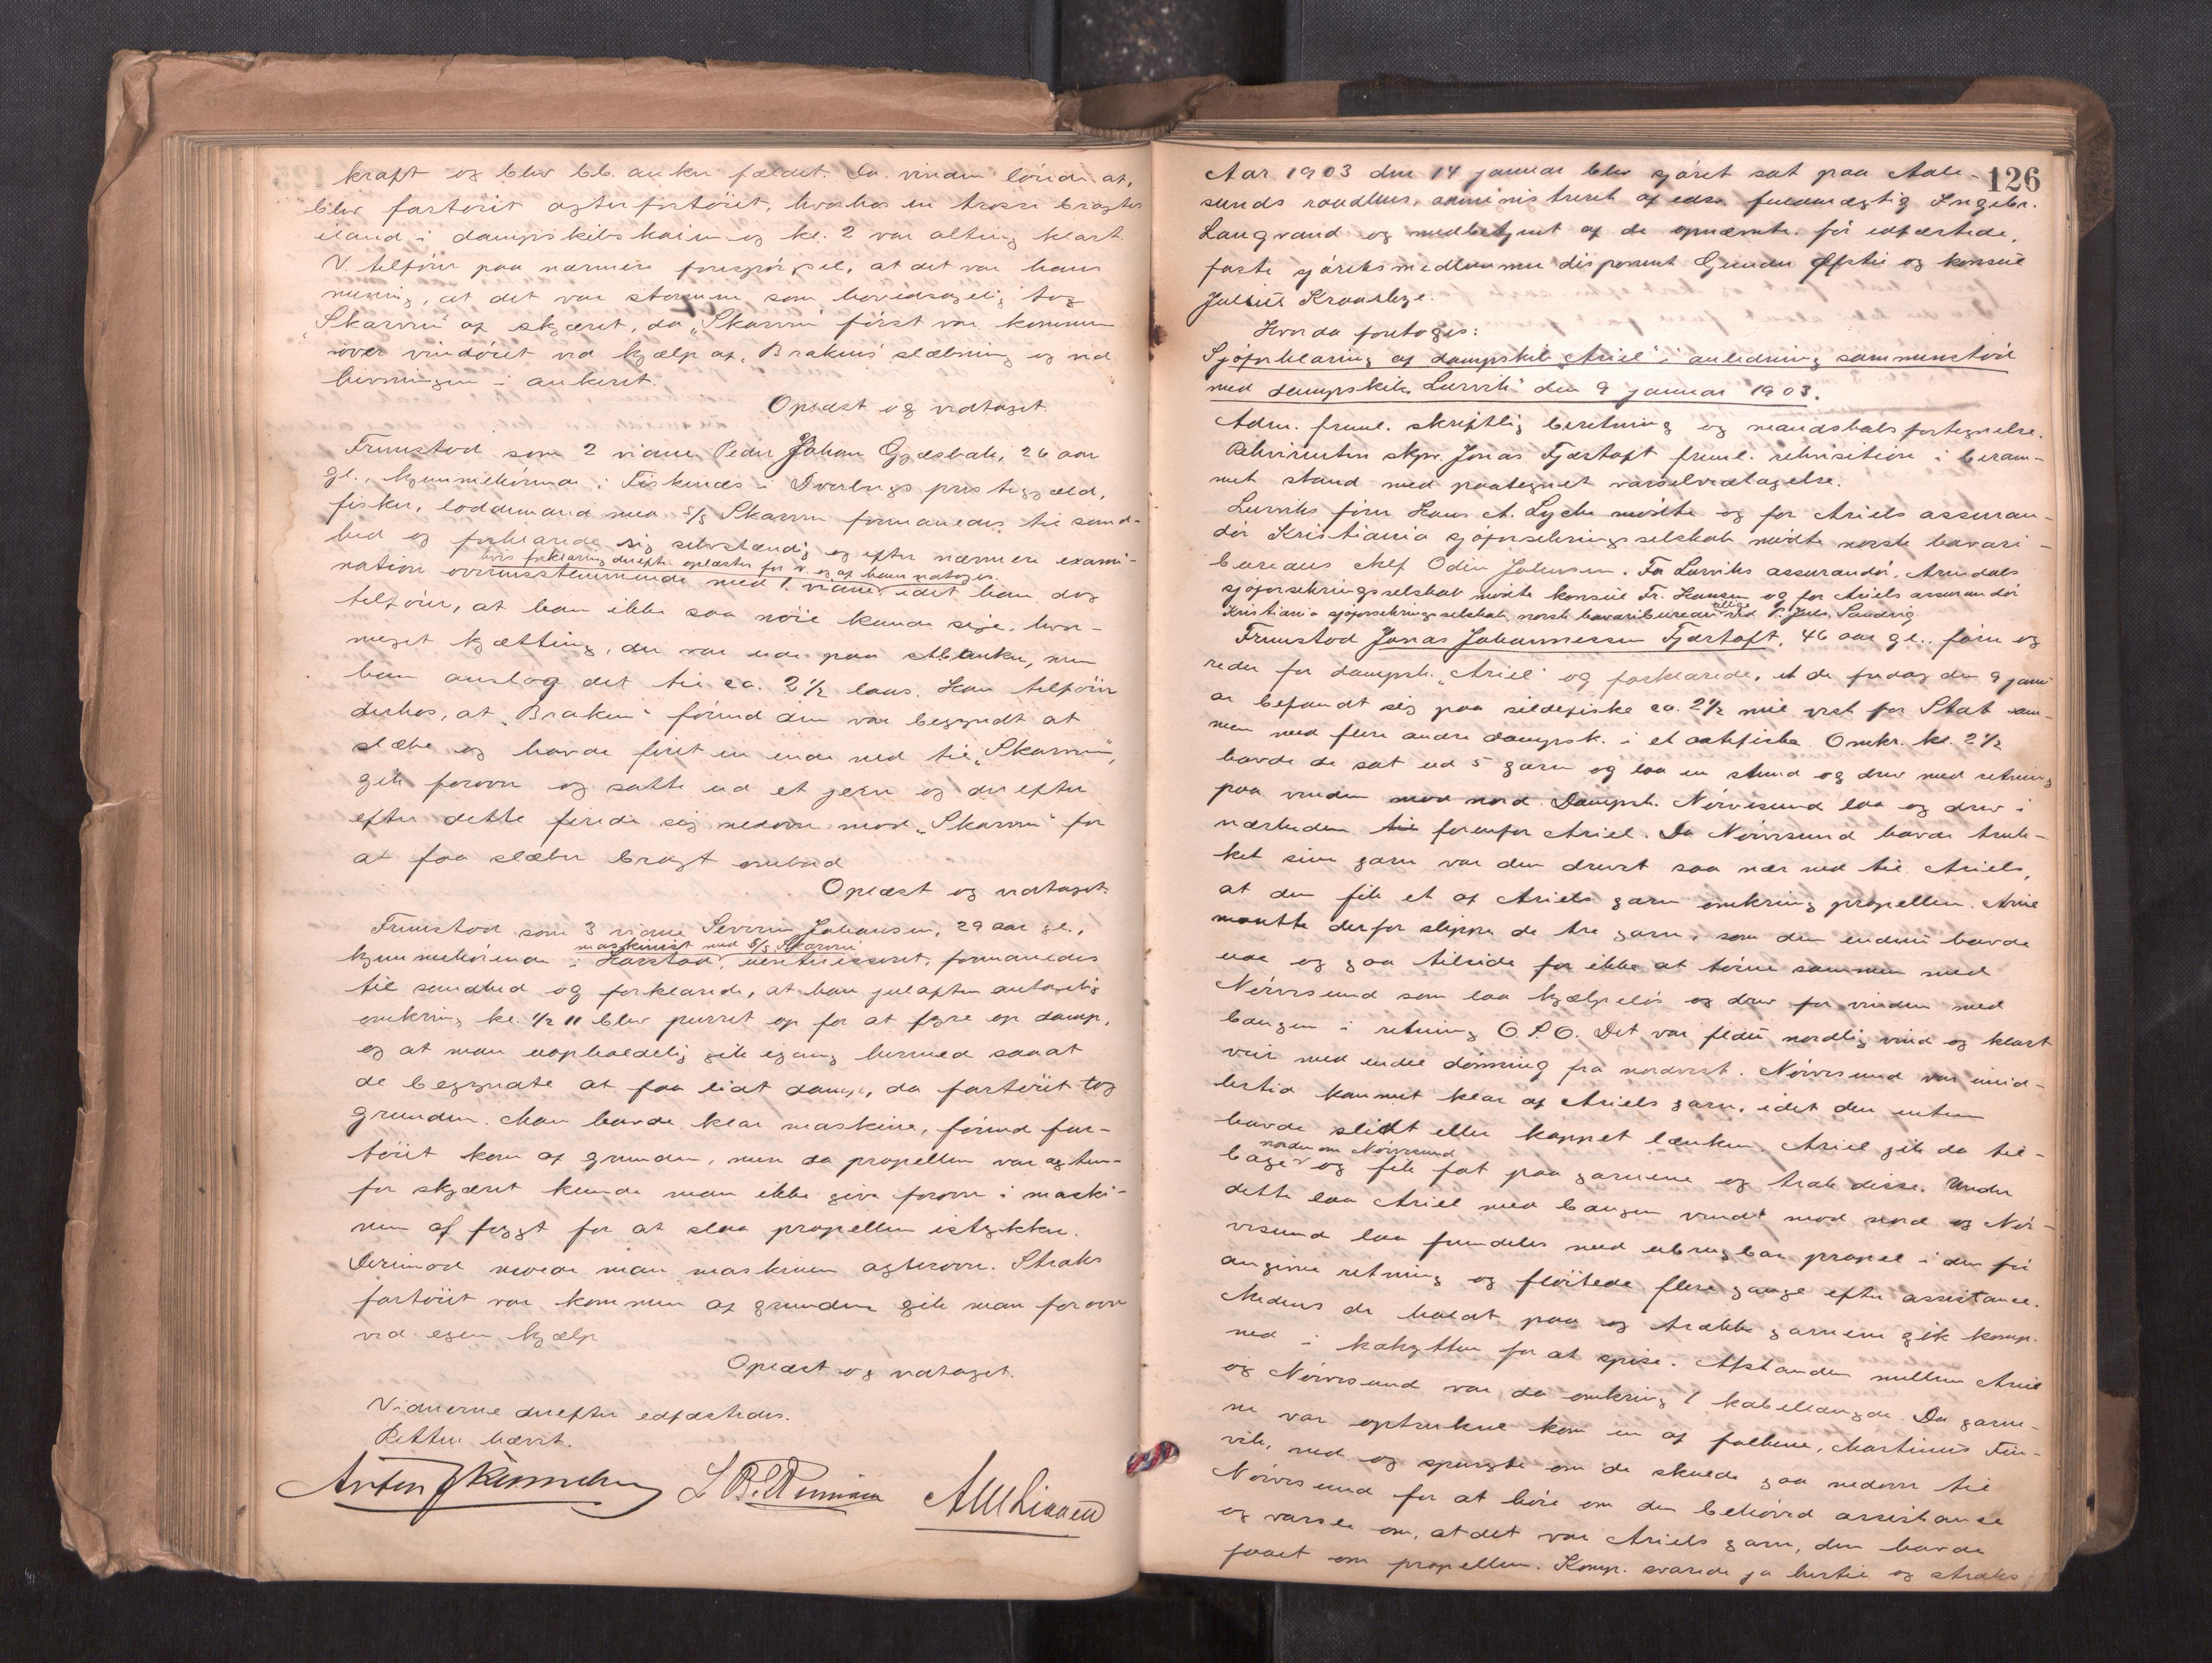 kraft og blev bb. anker fældet. Da vinden löiede at,
blev fartöiet agterfortöiet, hvorhos en trosse bragtes
iland i dampskibskaien og kl. 2 var alting klart.
V. tilföier paa nærmere forespörgsel, at det var hans
mening, at det var stormen som hovedsagelig tog
"Skarven" af skjæret, da "Skarven" först var kommen
over vindöiet ved hjælp af "Brakens" slæbning og ved
hivningen i ankeret.
Oplæst og vedtaget.
Fremstod som 2 vidne Peder Johan Gjæsbak, 26 aar
gl., hjemmehörende i Fiskenes i Dverbergs prestegjæld,
fisker, loddemand med S/S Skarven formanedes til sand-
hed og forklarede sig selvstændig og efter nærmere exami-
hvis forklaring derefter oplæstes for v. og af ham vedtoges.
nation overensstemmende med 1. vidne idet han dog
tilföier, at han ikke saa nöie kunde sige, hvor-
meget kjætting, der var ude paa bb anker, men
han anslog det til ca. 2 1/2 laas. Han tilföier
derhos, at "Braken" förend den var begyndt at
slæbe og havde firet en ende ned til "Skarven",
gik forover og satte ud et jern og derefter
efter dette firede sig nedover mod "Skarven" for
at faa slæber bragt ombord
Oplæst og vedtaget.
Fremstod som 3 vidne Severin Johansen, 29 aar gl.,
maskinist med S/S Skarven
hjemmehörende i Harstad, formanedes
til sandhed og forklarede, at han julaften antagelig
omkring kl. 1/2 11 blev purret op for at fyre op damp,
og at man uopholdelig gik igang hermed saa at
de begyndte at faa lidt damp, da fartöiet tog
grunden. Man havde klar maskine, förend far-
töiet kom af grunden, men da propellen var agten-
for skjæret kunde man ikke give forover i maski-
nen af frygt for at slaa propellen istykker.
Derimod man maskinen agterover. Straks
fartöiet var kommen af grunden gik man forover
ved egen hjælp
Oplæst og vedtaget.
Vidnerne derefter edfæstedes.
Retten hævet.
Aar 1903 den 14 januar blev sjöret sat paa Aale-
126
sunds raadhus, administreret af edsv. fuldmægtig Ingebr.
Langvand og medbetjent af de opnævnte, för edfæstede,
faste sjöretsmedlemmer disponent Gunder og konsul
Julius Kraabye.
Hvorda foretoges:
Sjöforklaring af dampskib "Ariel" i anledning sammenstöd
med dampskib "Larvik" den 9 januar 1903.
Adm. freml. skriftlig beretning og mandskabsfortegnelse.
Rekvirenten skpr. Jonas Fjærtoft freml. rekvisition i beram-
met stand med paategnet varselvedtagelse.
Larviks förer Hans A. Lyche mödte og for Ariels assuran-
dör Kristiania sjöforsikringsselskab mödte norsk havari-
bureaus chef Odin Johansen. For Larviks assurandör, Arendals
sjöforsikringsselskab mödte konsul Fr. Hansen og for Ariels assurandör
Kristiania sjöforsikringsselskab, norsk havaribureau tillige ved Jens Sandvig
Fremstod Jonas Johannessen Fjærtoft, 46 aar gl., förer og
reder for dampsk. "Ariel" og forklarede, at de fredag den 9 janu
ar befandt sig paa sildefiske ca. 2 1/2 mil vest for Stat sam-
men med flere andre dampsk. i et aatefiske. Omkr. kl. 2 1/2
havde de sat ud 5 garn og laa en stund og drev med retning
paa vinden mod nord. Dampsk. Nörvesund laa og drev i
nærheden til forenfor Ariel. Da Nörvesund havde truk-
ket sine garn var den drevet saa nær ned til Ariels,
at den fik et af Ariels garn omkring propellen. Ariel
maatte derfor slippe de tre garn, som den endnu havde
ude og gaa tilside for ikke at törne sammen med
Nörvesund som laa hjælpelös og drev for vinden med
baugen i retning O.S.O. Det var flau nordlig vind og klart
veir med endel dönning fra nordvest. Nörvesund var imid-
lertid kommet klar af Ariels garn, idet den enten
havde slidt eller kappet lænken. Ariel gik da til-
norden om Nörvesund
bage og fik fat paa garnene og trak disse. Under
dette laa Ariel med baugen vendt mod nord og Nör-
vesund laa fremdeles med ubrugbar propel i den för
angivne retning og flöitede flere gange efter assistance.
Medens de holdt paa og trække garnene gik komp.
ned i kahytten for at spise. Afstanden mellem Ariel
og Nörvesund var da omkring 1 kabellængde. Da garne-
ne var optrukne kom en af folkene, Martinus Fin-
vik, ned og spurgte om de skulde gaa nedover til
Nörvesund for at höre om den behöved assistance
og varsle om, at det var Ariels garn, den havde
faaet om propellen. Komp. svarede ja hertil og straks